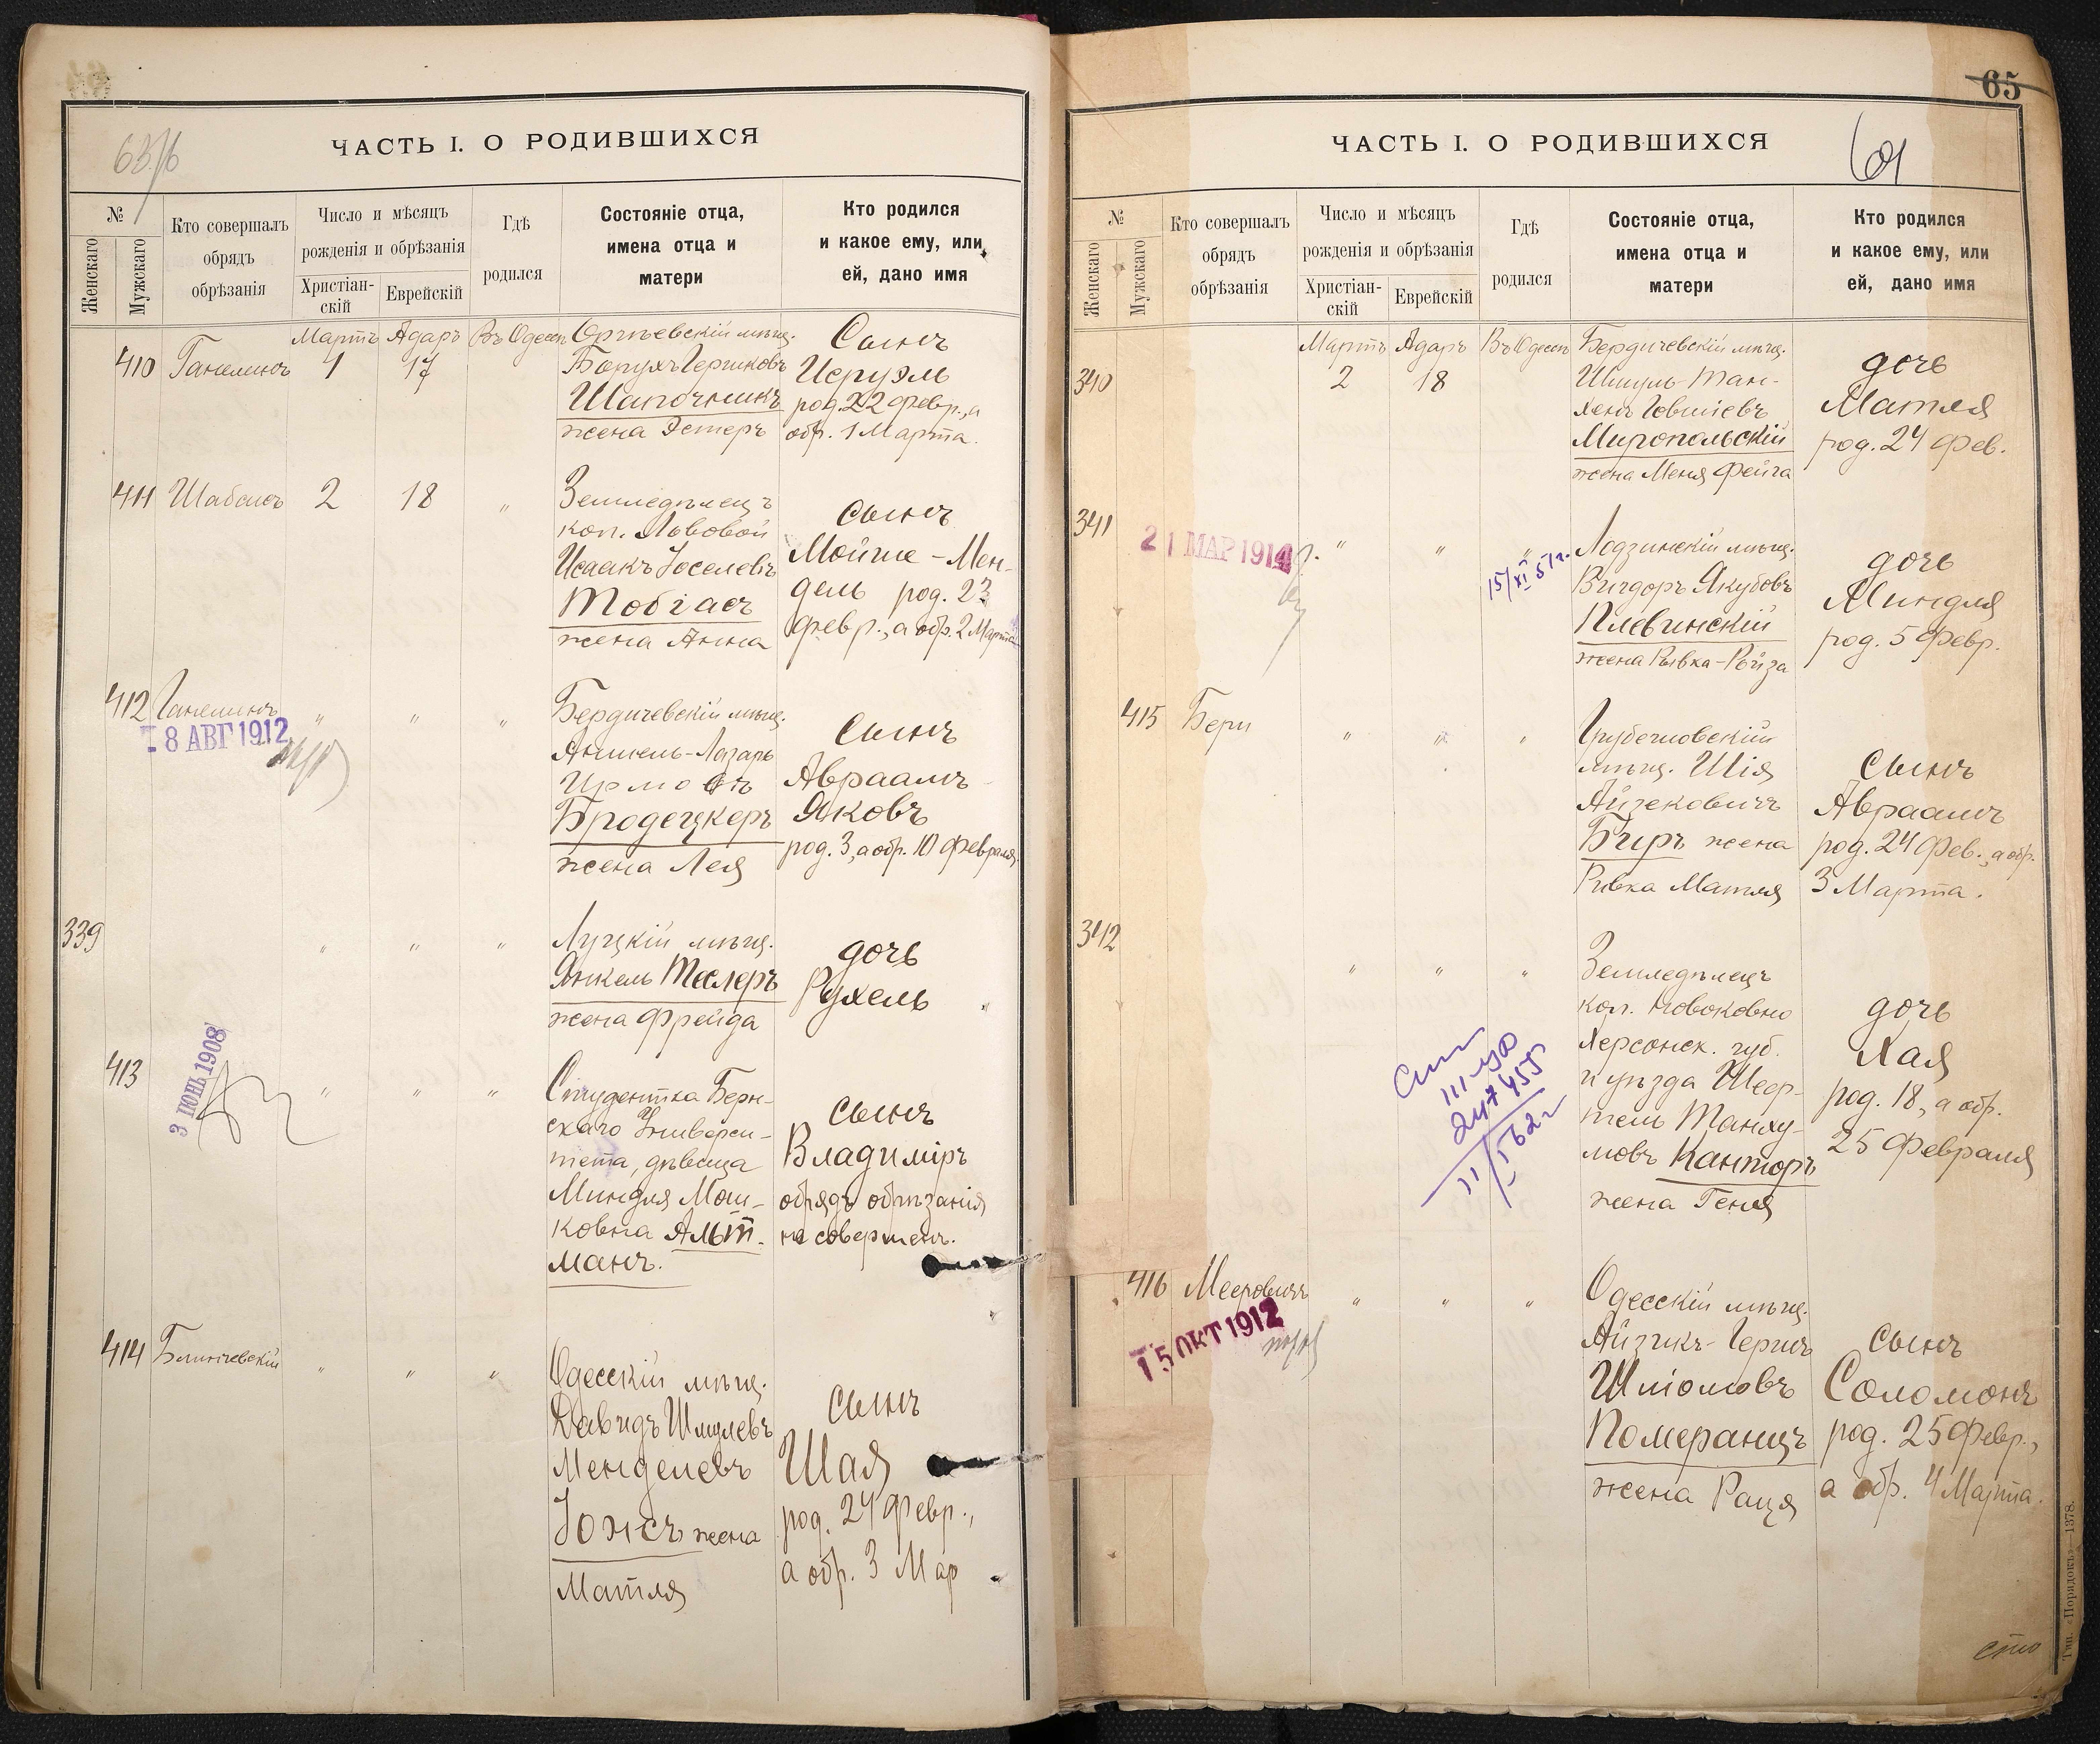 63/б
ЧАСТЬ I. О РОДИВШИХСЯ
№
Женскаго
Мужскаго
Кто совершалъ
обрядъ
обрѣзанія
Число и мѣсяцъ
рожденія и обрѣзанія
Христіан-
скій
Еврейскій
Гдѣ
родился
Состояніе отца,
имена отца и
матери
Кто родился
и какое ему, или
ей, дано имя
410
Ганелинъ
Мартъ
1
Адаръ
17
Въ Одессѣ
Оргѣевскій мѣщ.
Борухъ Гершковъ
Шапочникъ
жена Эстеръ
Сынъ
Иеруэль
род. 22 Февр., а
обр. 1 Марта.
411
Шабсисъ
2
18
"
Земледѣлецъ
кол. Львовой
Исаакъ Іоселевъ
Тобіасъ
жена Анна
Сынъ
Мойше-Мен-
дель род. 23
февр., а обр. 2 Марта
412
Ганелинъ
8 АВГ 1912
"
"
"
Бердичевскій мѣщ.
Янкель-Лазарь
Бродецкеръ
жена Лея
Сынъ
Авраамъ
Яковъ
род. 3, а обр. 10 Февраля.
339
"
"
"
Луцкій мѣщ.
Янкель Теслеръ
жена Фрейда
дочь
Рухель
413
3 ІЮНЬ 1908
"
"
"
Студентка Берн-
скаго Универси-
тета, дѣвица
Миндля Мош-
ковна Альт-
манъ.
сынъ
Владиміръ
обрядъ обрѣзанія
не совершенъ.
414
Блиничевскій
"
"
"
Одесскій мѣщ.
Давидъ Шмулевъ
Менделевъ
Іонсъ жена
Матля
Сынъ
Шая
род. 24 Февр.,
а обр. 3 Мар
65
ЧАСТЬ I. О РОДИВШИХСЯ
№
Женскаго
Мужскаго
Кто совершалъ
обрядъ
обрѣзанія
Число и мѣсяцъ
рожденія и обрѣзанія
Христіан-
скій
Еврейскій
Гдѣ
родился
Состояніе отца,
имена отца и
матери
Кто родился
и какое ему, или
ей, дано имя
340
Мартъ
2
Адаръ
18
Въ Одессѣ
Бердичевскій мѣщ.
Шмуль-Тан-
хенъ Говшіевъ
Миропольскій
жена Меня Фейга
дочь
Матля
род. 24 Фев.
341
21 МАР 1914
"
"
"
15/XI 51г.
Лодзинскій мѣщ.
Вигдоръ Якубовъ
Плевинскій
жена Рывка-Ройза
дочь
Миндля
род. 5 Февр.
415
Бери
"
"
"
Грубешовскій
мѣщ. Шія
Айзековичъ
Биръ жена
Ривка Матля
Сынъ
Авраамъ
род. 24 Фев., а обр.
3 Марта.
342
"
"
"
III
247455
Земледѣлецъ
кол. Новоковно
Херсонск. губ.
и уѣзда Шеф-
тель Танху-
мовъ Канторъ
жена Геня
дочь
Хая
род. 18, а обр.
25 Февраля
416
Мееровичъ
15 ОКТ 1912
"
"
"
Одесскій мѣщ.
Айзикъ-Гершъ
Шліомовъ
Померанцъ
жена Раця
сынъ
Соломонъ
род. 25 Февр.,
а обр. 4 Марта.
Тип. «Порядокъ»—1378.